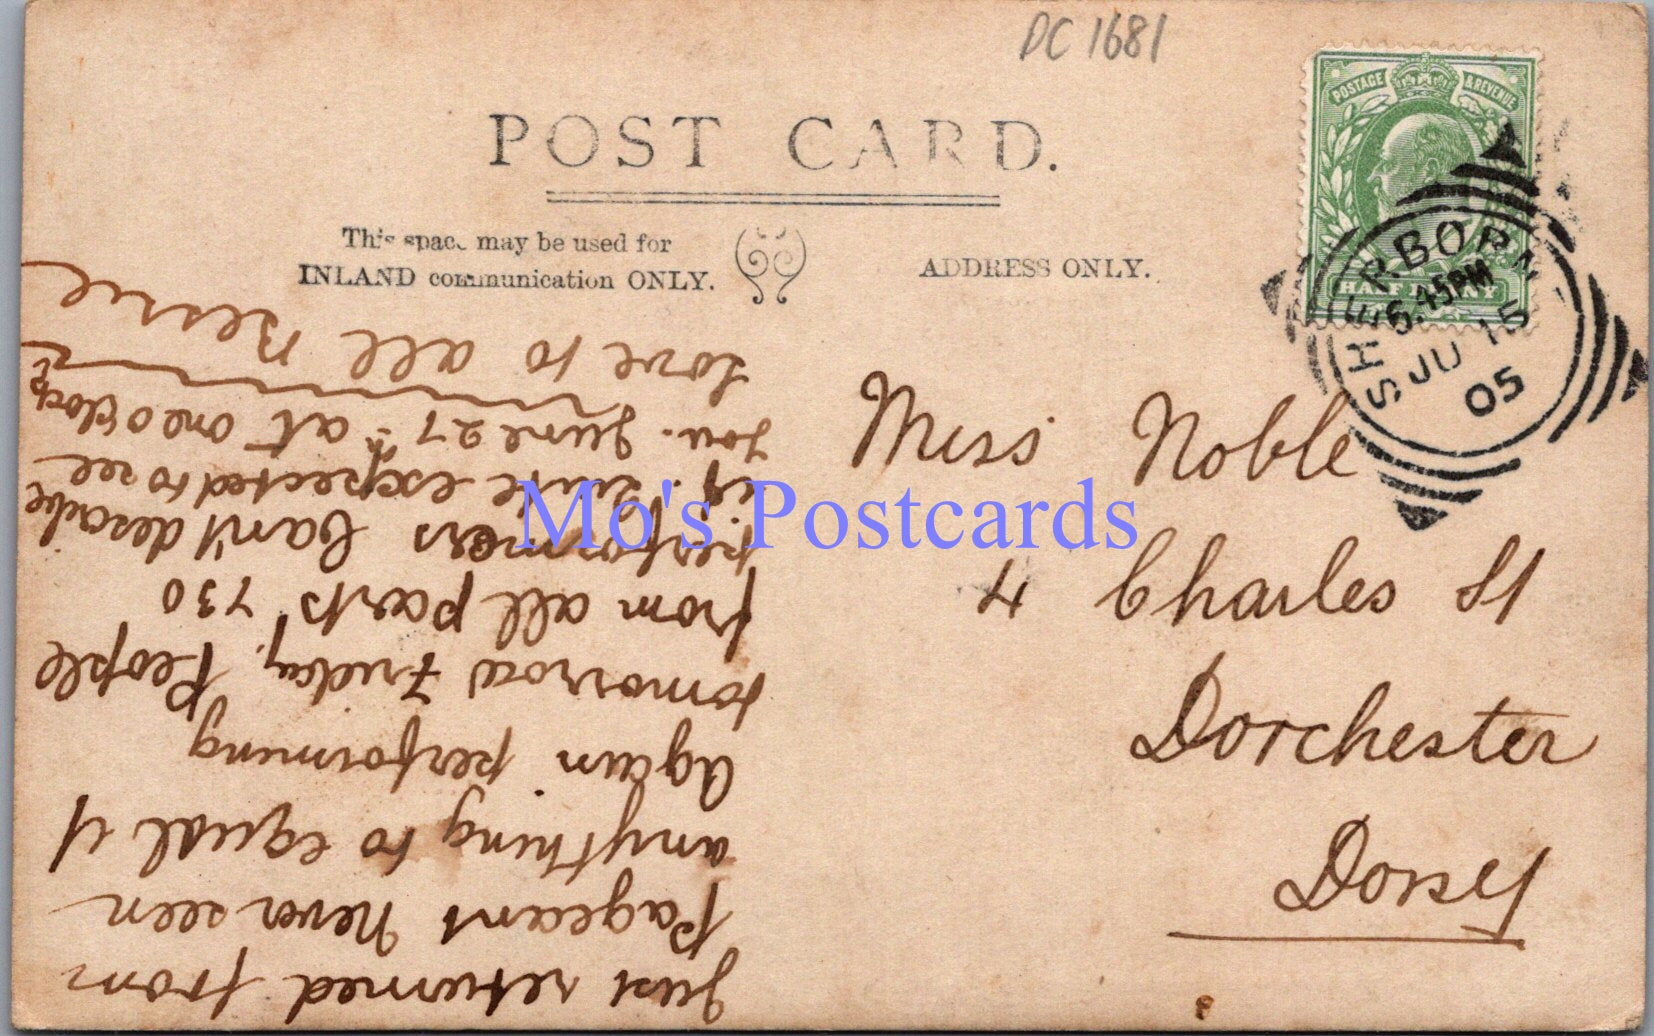 DC 1681
POST CARD.
This space may be used for
INLAND communication ONLY.
ADDRESS ONLY.
POSTAGE & REVENUE
HALF PENNY
SHERBORNE
6.45PM
JU 15
05
Miss Noble
4 Charles St
Dorchester
Dorset
Just returned from
Pageant Never seen
anything to equal it
Again performing
tomorrow Friday. People
from all parts 730
performers Can't describe
it. Quite expected to see
you. June 27th at one o'clock
Love to all Bessie
Mo's Postcards